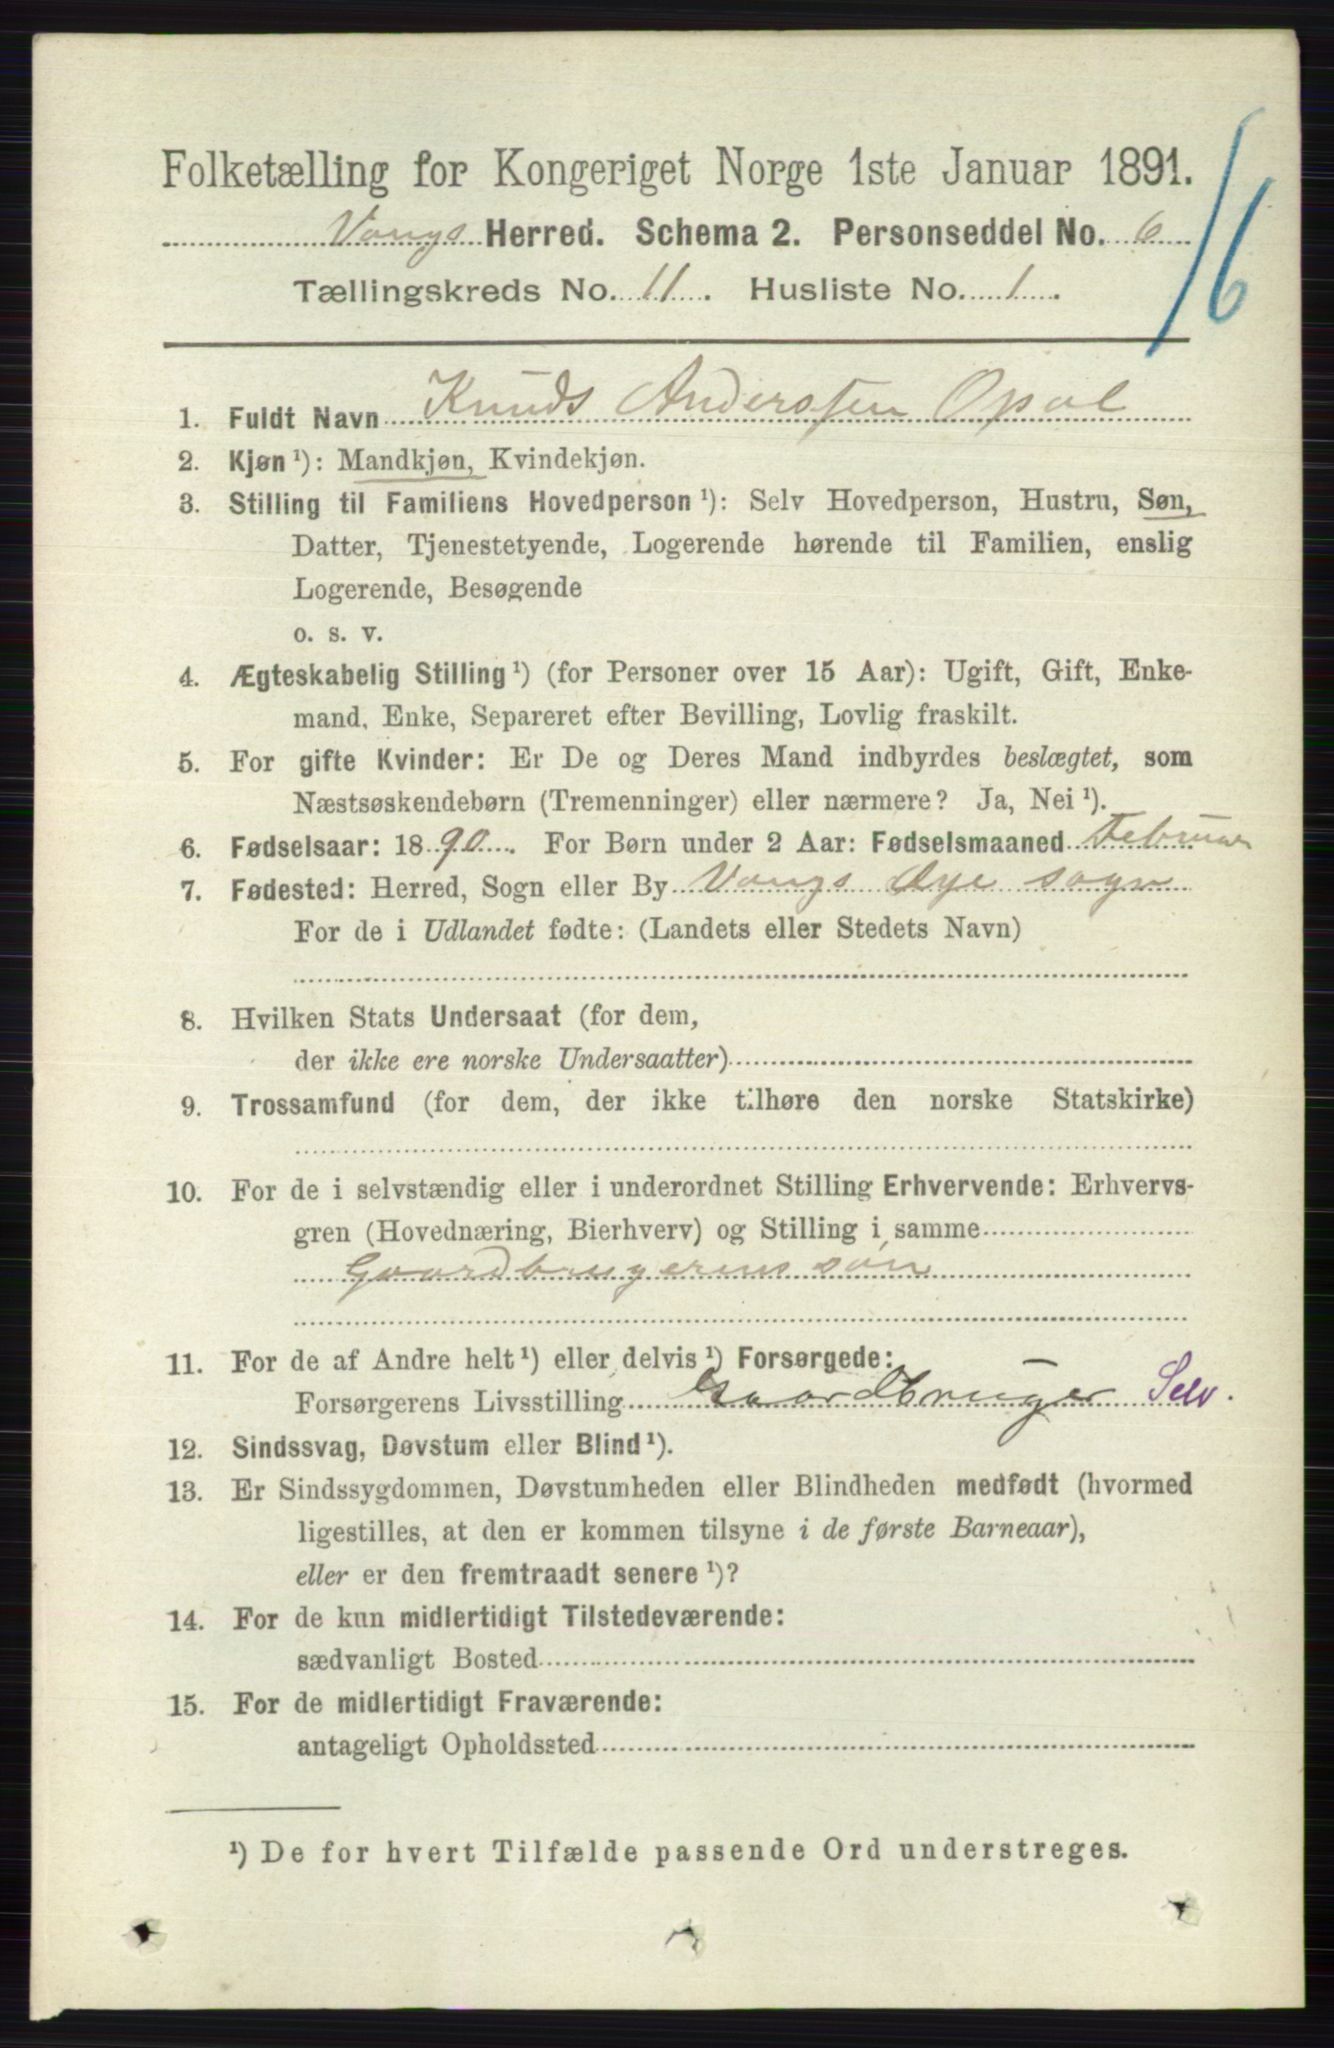 Folketælling for Kongeriget Norge 1ste Januar 1891.
Vangs Herred. Schema 2. Personseddel No. 6
Tællingskreds No. 11. Husliste No. 1.
16
1. Fuldt Navn Knuds Anderssen Opal
2. Kjøn ¹): Mandkjøn, Kvindekjøn.
3. Stilling til Familiens Hovedperson ¹): Selv Hovedperson, Hustru, Søn,
Datter, Tjenestetyende, Logerende hørende til Familien, enslig
Logerende, Besøgende
o. s. v.
4. Ægteskabelig Stilling ¹) (for Personer over 15 Aar): Ugift, Gift, Enke-
mand, Enke, Separeret efter Bevilling, Lovlig fraskilt.
5. For gifte Kvinder: Er De og Deres Mand indbyrdes beslægtet, som
Næstsøskendebørn (Tremenninger) eller nærmere? Ja, Nei ¹).
6. Fødselsaar: 1890. For Børn under 2 Aar: Fødselsmaaned Februar
7. Fødested: Herred, Sogn eller By Vangs Øye sogn
For de i Udlandet fødte: (Landets eller Stedets Navn)
8. Hvilken Stats Undersaat (for dem,
der ikke ere norske Undersaatter)
9. Trossamfund (for dem, der ikke tilhøre den norske Statskirke)
10. For de i selvstændig eller i underordnet Stilling Erhvervende: Erhvervs-
gren (Hovednæring, Bierhverv) og Stilling i samme
Gaardbrugerens søn
11. For de af Andre helt ¹) eller delvis ¹) Forsørgede:
Forsørgerens Livsstilling Gaardbruger Selv.
12. Sindssvag, Døvstum eller Blind ¹).
13. Er Sindssygdommen, Døvstumheden eller Blindheden medfødt (hvormed
ligestilles, at den er kommen tilsyne i de første Barneaar),
eller er den fremtraadt senere ¹)?
14. For de kun midlertidigt Tilstedeværende:
sædvanligt Bosted
15. For de midlertidigt Fraværende:
antageligt Opholdssted
¹) De for hvert Tilfælde passende Ord understreges.